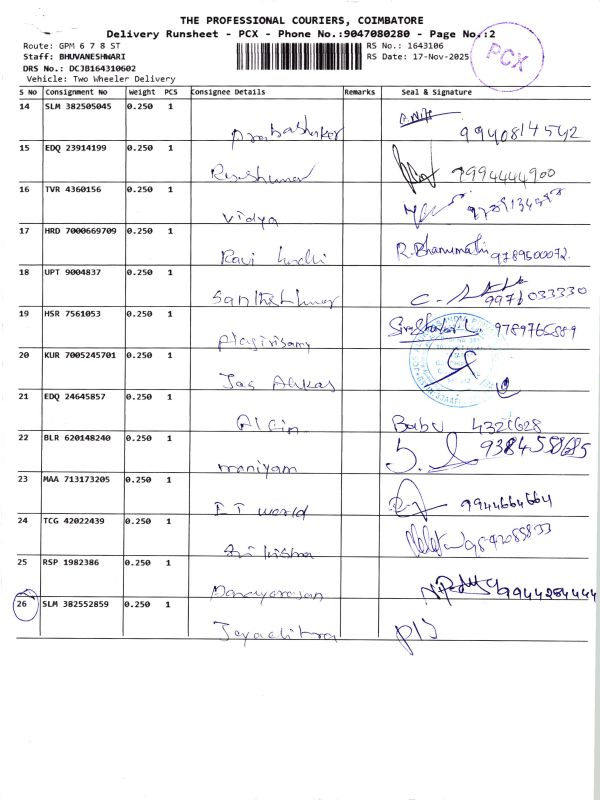 THE PROFESSIONAL COURIERS, COIMBATORE
Delivery Runsheet - PCX - Phone No.:9047080280 - Page No.:2
Route: GPM 6 7 8 ST
RS No.: 1643106
Staff: BHUVANESHWARI
RS Date: 17-Nov-2025
DRS No.: DCJB164310602
Vehicle: Two Wheeler Delivery
PCX
S No Consignment No Weight PCS Consignee Details Remarks Seal & Signature
14 SLM 382505045 0.250 1
Prabashaker 9940814542
15 EDQ 23914199 0.250 1
7994444900
16 TVR 4360156 0.250 1
Vidya
17 HRD 7000669709 0.250 1
Ravi R.Bhanumathi 9789500072.
18 UPT 9004837 0.250 1
9971033330
19 HSR 7561053 0.250 1
9789765889
20 KUR 7005245701 0.250 1
Jas
21 EDQ 24645857 0.250 1
Babu 4321628
22 BLR 620148240 0.250 1
maniyam 9384558685
23 MAA 713173205 0.250 1
ET world 9944664664
24 TCG 42022439 0.250 1
25 RSP 1982386 0.250 1
9944284444
26 SLM 382552859 0.250 1